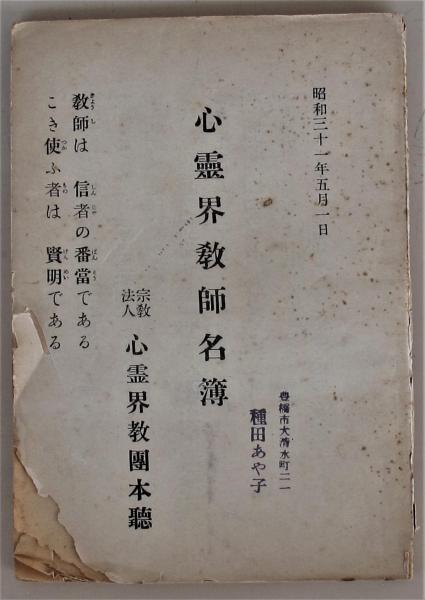 昭和三十一年五月一日
心靈界教師名簿
豊橋市大清水町二一
種田あや子
宗教法人 心霊界教團本聽
教師は 信者の番當である
こき使ふ者は 賢明である